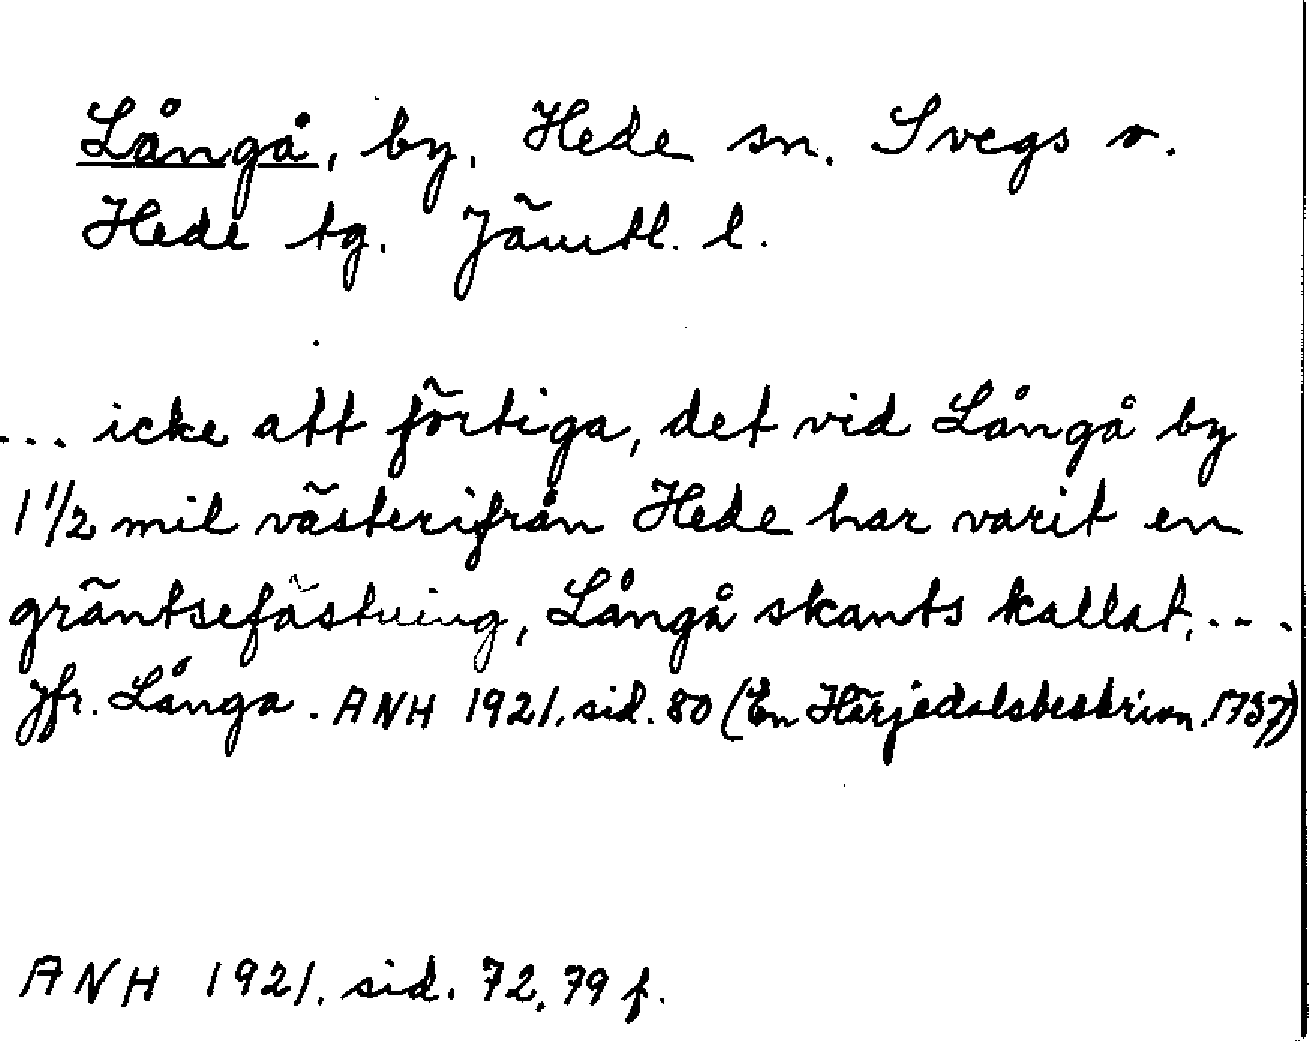 Långå, by, Hede sn. Svegs o.
Hede tg. Jämtl. l.
... icke att förtiga, det vid Långå by
1 1/2 mil västerifrån Hede har varit en
gräntsefästning, Långå skants kallat, ...
Jfr. Långa. ANH 1921. sid. 80 (En Härjedalsbeskrivn. 1757)
ANH 1921. sid. 72, 79 f.